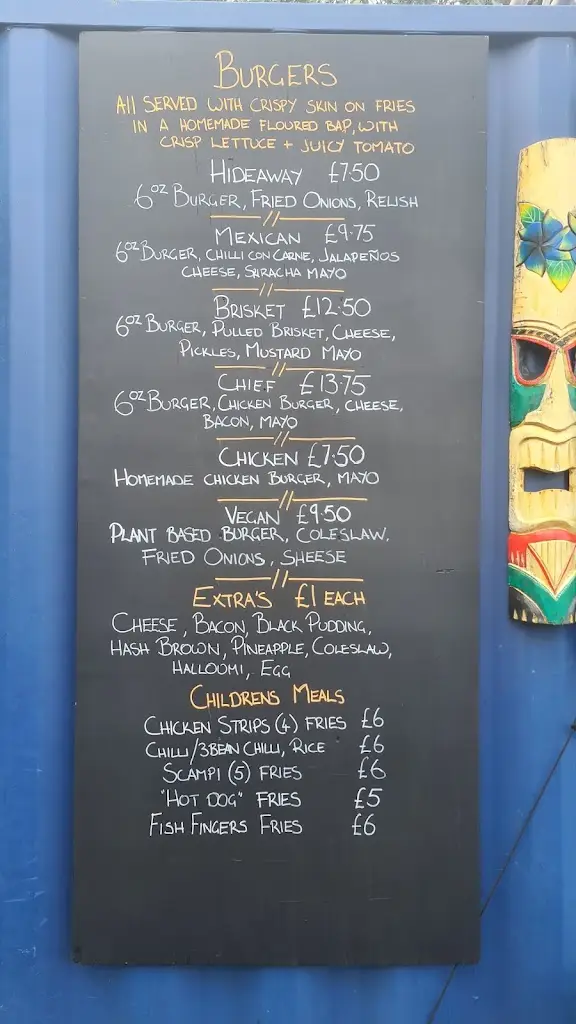 BURGERS
All SERVED WITH CRISPY SKIN ON FRIES
IN A HOMEMADE FLOURED BAP, WITH
CRISP LETTUCE + JUICY TOMATO
HIDEAWAY £7.50
6oz BURGER, FRIED ONIONS, RELISH
MEXICAN £9.75
6oz BURGER, CHILLI CON CARNE, JALAPEÑOS
CHEESE, SIRACHA MAYO
BRISKET £12.50
6oz BURGER, PULLED BRISKET, CHEESE,
PICKLES, MUSTARD MAYO
CHIEF £13.75
6oz BURGER, CHICKEN BURGER, CHEESE,
BACON, MAYO
CHICKEN £7.50
HOMEMADE CHICKEN BURGER, MAYO
VEGAN £9.50
PLANT BASED BURGER, COLESLAW,
FRIED ONIONS, SHEESE
EXTRA'S £1 EACH
CHEESE, BACON, BLACK PUDDING,
HASH BROWN, PINEAPPLE, COLESLAW,
HALLOUMI, EGG
CHILDRENS MEALS
CHICKEN STRIPS (4) FRIES £6
CHILLI/3BEAN CHILLI, RICE £6
SCAMPI (5) FRIES £6
"HOT DOG" FRIES £5
FISH FINGERS FRIES £6